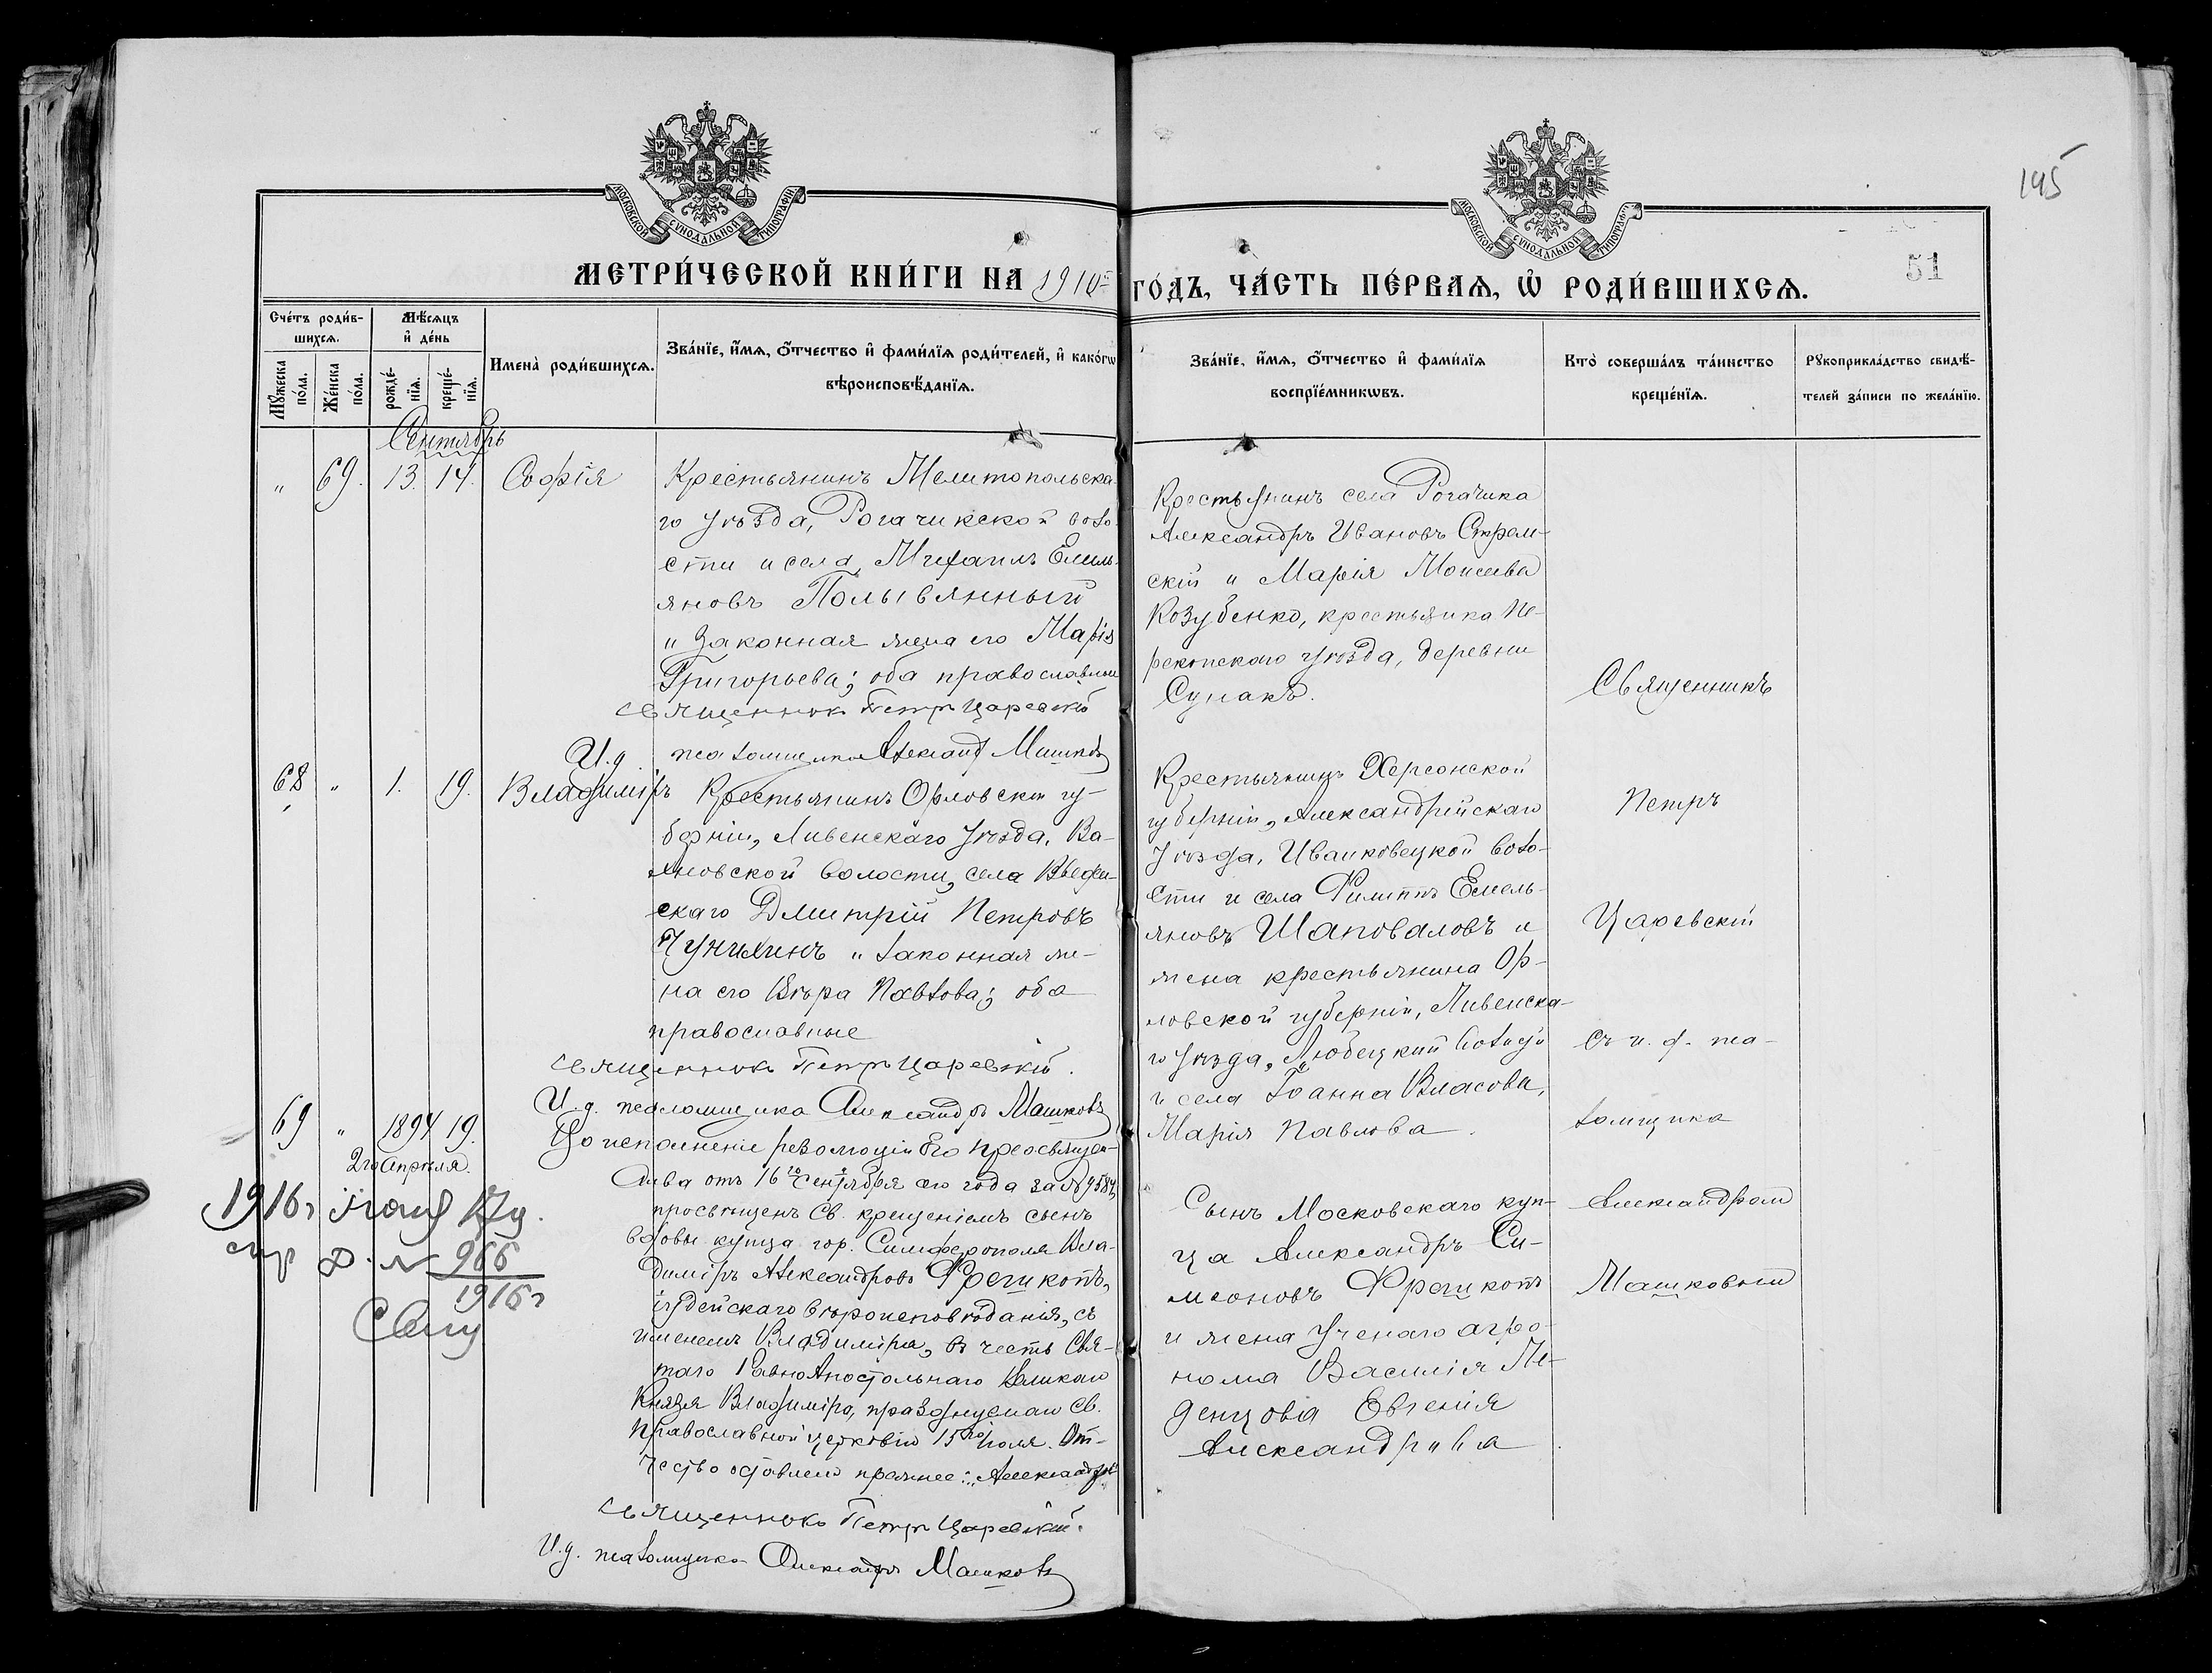 195
51
МОСКОВСКОЙ СУНОДАЛЬНОЙ ТИПОГРАФІИ
МОСКОВСКОЙ СУНОДАЛЬНОЙ ТИПОГРАФІИ
МЕТРИ́ЧЕСКОЙ КНИ́ГИ НА 1910 ГО́ДЪ, ЧА́СТЬ ПЕ́РВАѦ, Ѡ҆ РОДИ́ВШИХСѦ.
Сче́тъ роди́в-
шихсѧ.
Мѣ́сѧцъ
и҆ де́нь
Мꙋ́жеска
по́ла.
Же́нска
по́ла.
рожде́-
нїѧ.
креще́-
нїѧ.
Имена̀ роди́вшихсѧ.
Зва́нїе, и҆́мѧ, ѻ҆́тчество и҆ фами́лїѧ роди́телей, и҆ како́гѡ
вѣроисповѣ́данїѧ.
Зва́нїе, и҆́мѧ, ѻ҆́тчество и҆ фами́лїѧ
воспрїе́мникѡвъ.
Кто̀ соверша́лъ та́инство
креще́нїѧ.
Рꙋкоприкла́дство свидѣ́-
телей за́писи по жела́нїю.
Сентябрь
" 69. 13. 14. Софія
Крестьянинъ Мелитопольска-
го уѣзда, Рогачикской воло-
сти и села, Михаилъ Емель-
яновъ Полывянный
и законная жена его Марія
Григорьева; оба православные
Священникъ Петръ Царевскій
И.д. псаломщика Александръ Машковъ
Крестьянинъ села Рогачика
Александръ Ивановъ Страм-
скій и Марія Моисеева
Козубенко, крестьянка Пе-
рекопскаго уѣзда, деревни
Сунакъ.
Священникъ
Петръ
Царевскій
съ и. д. пса-
ломщика
Александромъ
Машковымъ
68 " 1. 19. Владиміръ
Крестьянинъ Орловской гу-
берніи, Ливенскаго уѣзда,
волости, села Введен-
скаго Дмитрій Петровъ
Пунихинъ и законная же-
на его Вѣра Павлова; оба
православные
Священникъ Петръ Царевскій.
И.д. псаломщика Александръ Машковъ
Крестьянинъ Херсонской
губерніи, Александрійскаго
уѣзда, Иванковецкой воло-
сти и села Филиппъ Емель-
яновъ Шаповаловъ и
жена крестьянина Ор-
ловской губерніи, Ливенска-
го уѣзда,
и села Іоанна Власова,
Марія Павлова.
69 " 1894 19.
2го Апрѣля.
Во исполненіе резолюціи Его Преосвящен-
ства отъ 16го Сентября сего года за № 9584,
просвѣщенъ Св. крещеніемъ сынъ
вдовы купца гор. Симферополя Вла-
диміръ Александровъ Френкопъ,
іудейскаго вѣроисповѣданія, съ
именемъ Владиміра, въ честь Свя-
таго Равноапостольнаго Великаго
Князя Владиміра, празднуемаго св.
Православной церковію 15го Іюля. От-
чество оставлено прежнее: Александръ
Священникъ Петръ Царевскій.
И.д. псаломщика Александръ Машковъ
Сынъ Московскаго куп-
ца Александръ Си-
меоновъ Френкопъ
и жена ученаго агро-
нома Василія Ме-
денцова Евгенія
Александрова.
1916г
966
1916г